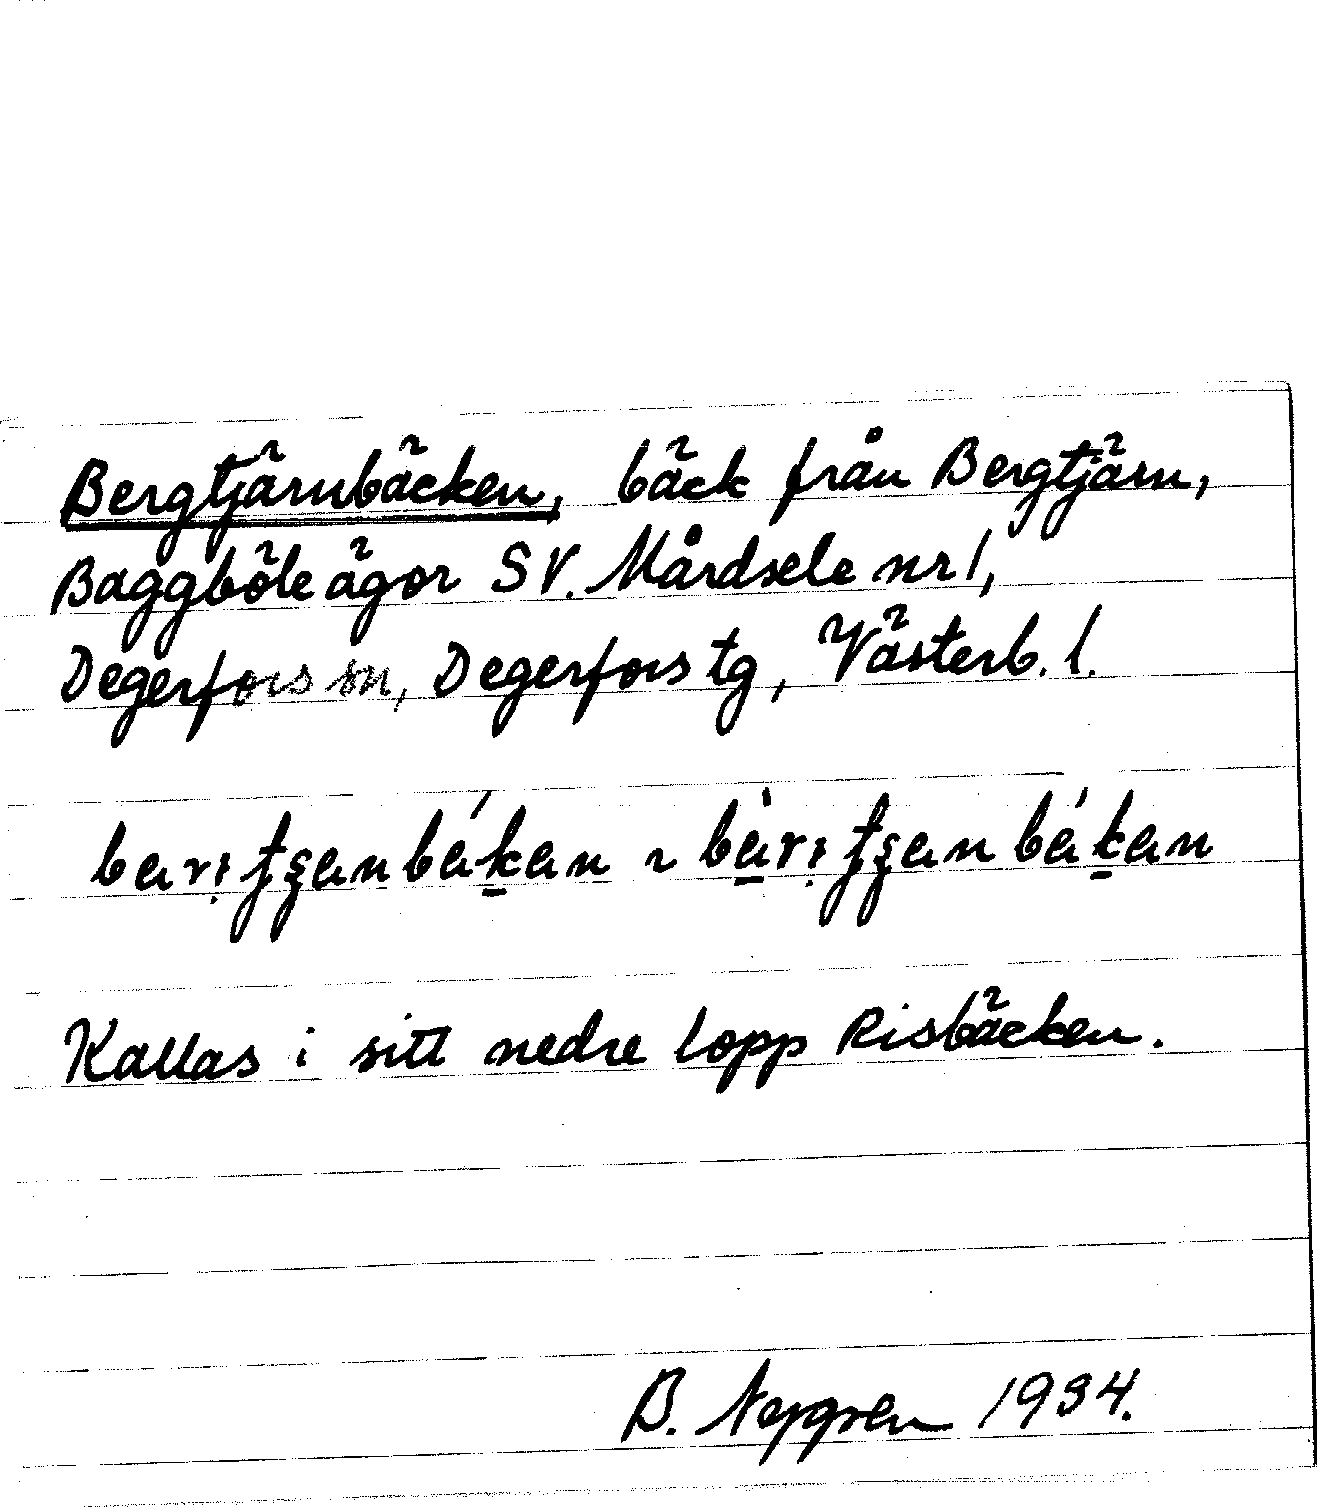 Bergtjärnbäcken, bäck från Bergtjärn,
Baggböle ägor SV. Mårdsele nr 1,
Degerfors sn, Degerfors tg, Västerb. l.
Kallas i sitt nedre lopp Risbäcken.
B. 1934.